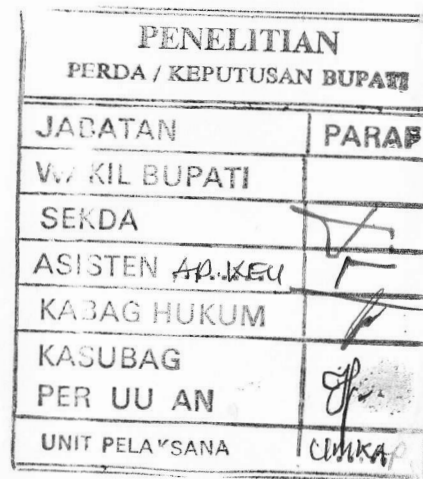 PENELITIAN
PERDA / KEPUTUSAN BUPATI
JABATAN PARAF
WAKIL BUPATI
SEKDA
ASISTEN AD. KEU
KABAG HUKUM
KASUBAG
PER UU AN
UNIT PELAKSANA